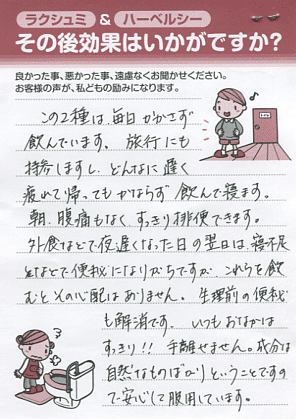 ラクシュミ & ハーベルシー
その後効果はいかがですか?
良かった事、悪かった事、遠慮なくお聞かせください。
お客様の声が、私どもの励みになります。
この2種は、毎日かかさず
飲んでいます。旅行にも
持参しますし、どんなに遅く
疲れて帰ってもかならず飲んで寝ます。
朝、腹痛もなく、すっきり排便できます。
外食などで夜遅くなった日の翌日は、寝不足
などで便秘になりがちですが、これらを飲
むとその心配はありません。生理前の便秘
も解消です。いつもおなかは
すっきり!!手離せません。成分は
自然なものばかりということですの
で安心して服用しています。